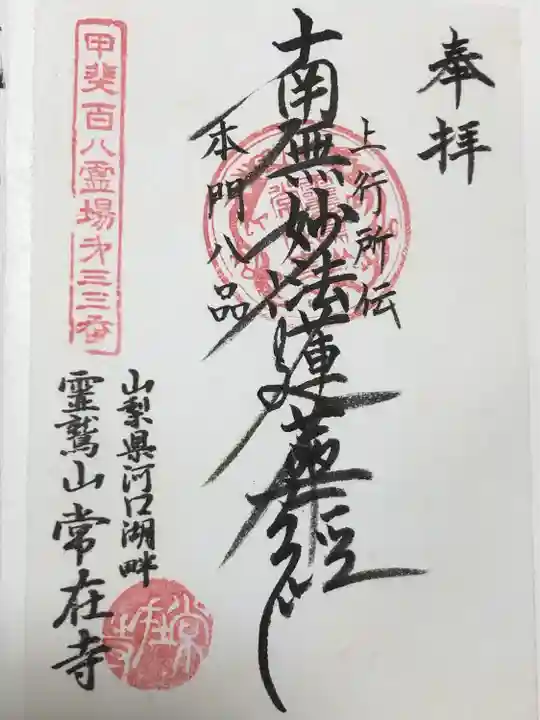 奉拝
上行所伝
南無妙法蓮華経
本門八品
甲斐百八霊場才三三番
山梨県河口湖畔
霊鷲山常在寺
常在寺